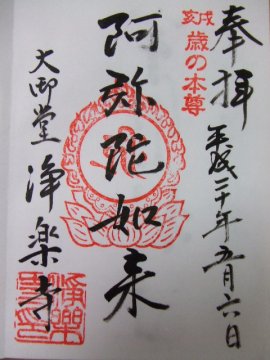 奉拝
平成二十年五月六日
戌亥
歳の本尊
阿弥陀如来
大御堂 浄楽寺